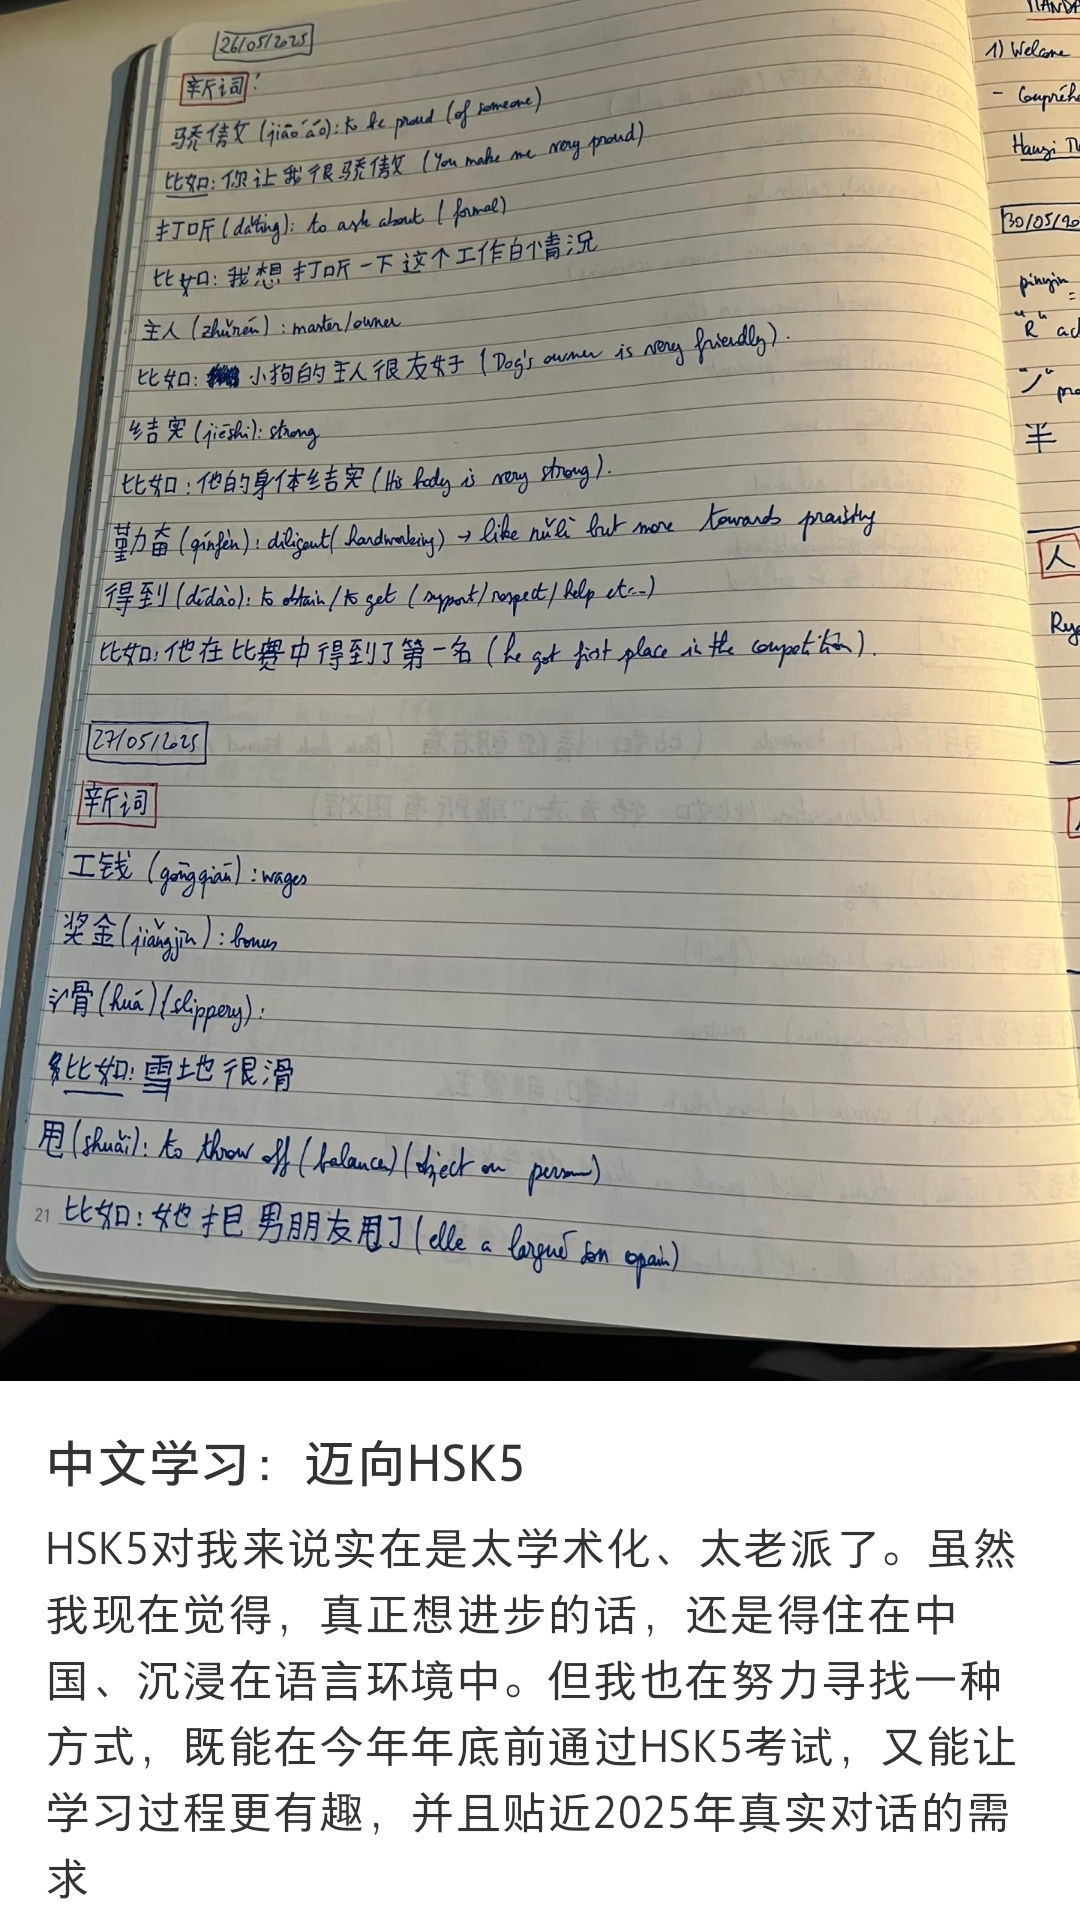 26/05/2025
新词:
骄傲 (jiāo'ào): to be proud (of someone)
比如: 你让我很骄傲 (You make me very proud)
打听 (dǎting): to ask about (formal)
比如: 我想打听一下这个工作的情况
主人 (zhǔrén): master/owner
比如: 小狗的主人很友好 (Dog's owner is very friendly).
结实 (jiēshi): strong
比如: 他的身体结实 (His body is very strong).
勤奋 (qínfèn): diligent (hardworking) → like nǔlì but more towards
得到 (dédào): to obtain/to get (support/respect/help etc...)
比如: 他在比赛中得到了第一名 (he got first place in the competition).
27/05/2025
新词
工钱 (gōngqián): wages
奖金 (jiǎngjīn): bonus
滑 (huá) (slippery):
比如: 雪地很滑
甩 (shuǎi): to throw off (balance) (object on person)
比如: 她把男朋友甩了 (elle a largué son copain)
21
1) Welcome
30/05/20
pinyin
"R"
半
人
中文学习：迈向HSK5
HSK5对我来说实在是太学术化、太老派了。虽然
我现在觉得，真正想进步的话，还是得住在中
国、沉浸在语言环境中。但我也在努力寻找一种
方式，既能在今年年底前通过HSK5考试，又能让
学习过程更有趣，并且贴近2025年真实对话的需
求